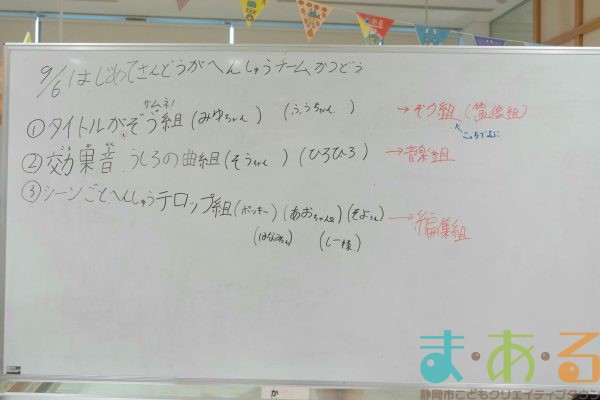 9/6 はじめてさんどうがへんしゅうチームかつどう
サムネ!
①タイトルがぞう組(みゆちゃん) (ふうちゃん) →ぞう組(画像組)
②効果音 うしろの曲組(そうちゃん) (ひろひろ) →音楽組
③シーンごとへんしゅうテロップ組(ポッキー) (あおちゃん) →編集組
(しー様)
か
ま・あ・る
静岡市こどもクリエイティブタウン